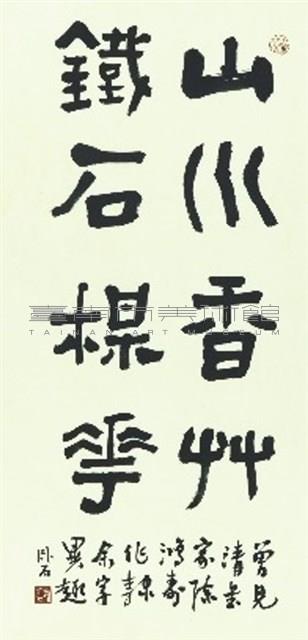 山川香艸
鐵石楳花
曾見
清書
家陳
鴻壽
作隸
余字
異趣
臺南市美術館
TAINAN ART MUSEUM